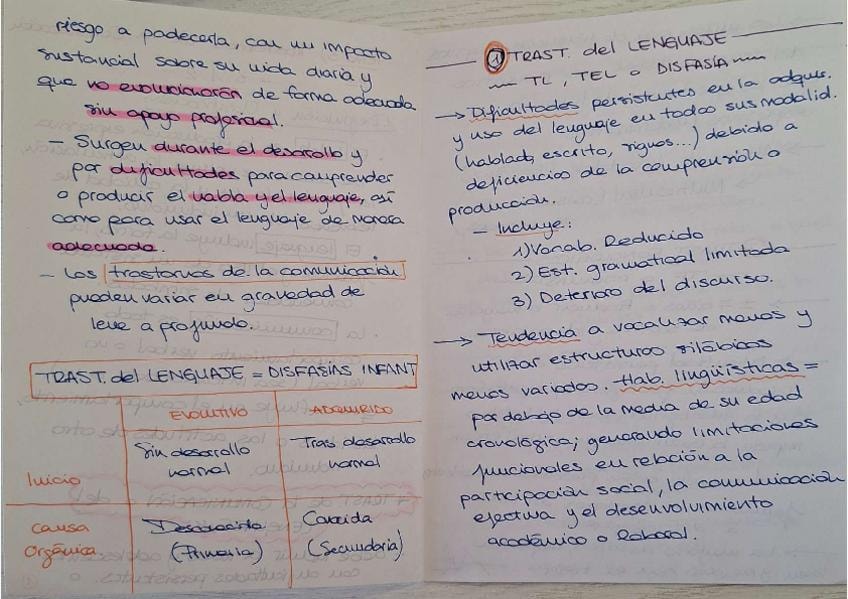 riesgo a padecerla, con un impacto
sustancial sobre su vida diaria y
que no evolucionarán de forma adecuada
sin apoyo profesional.
- Surgen durante el desarollo y
por dificultades para comprender
o producir el habla y el lenguaje, así
como para usar el lenguaje de manera
adecuada.
- Los trastornos de la comunicación
pueden variar en gravedad de
leve a profundo.
TRAST. del LENGUAJE = DISFASIAS INFANT
EVOLUTIVO ADQUIRIDO
Inicio Sin desarollo normal Tras desarollo normal
Causa Orgánica Desconocida (Primaria) Conocida (Secundaria)
① TRAST. del LENGUAJE
TL, TEL o DISFASÍA
→ Dificultades persistentes en la adquis.
y uso del lenguaje en todas sus modalid.
(hablad, escrito, signos...) debido a
deficiencias de la comprensión o
producción.
- Incluye:
1) Vocab. Reducido
2) Est. gramatical limitada
3) Deterioro del discurso.
→ Tendencia a vocalizar menos y
utilizar estructuras silábicas
menos variadas. Hab. lingüísticas =
por debajo de la media de su edad
cronológica; generando limitaciones
funcionales en relación a la
participación social, la comunicación
efectiva y el desenvolvimiento
académico o laboral.